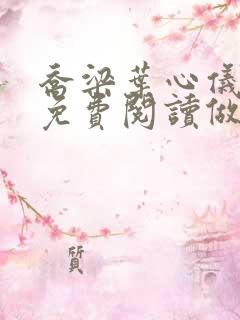 喬梁葉心儀
免費閱讀做
質